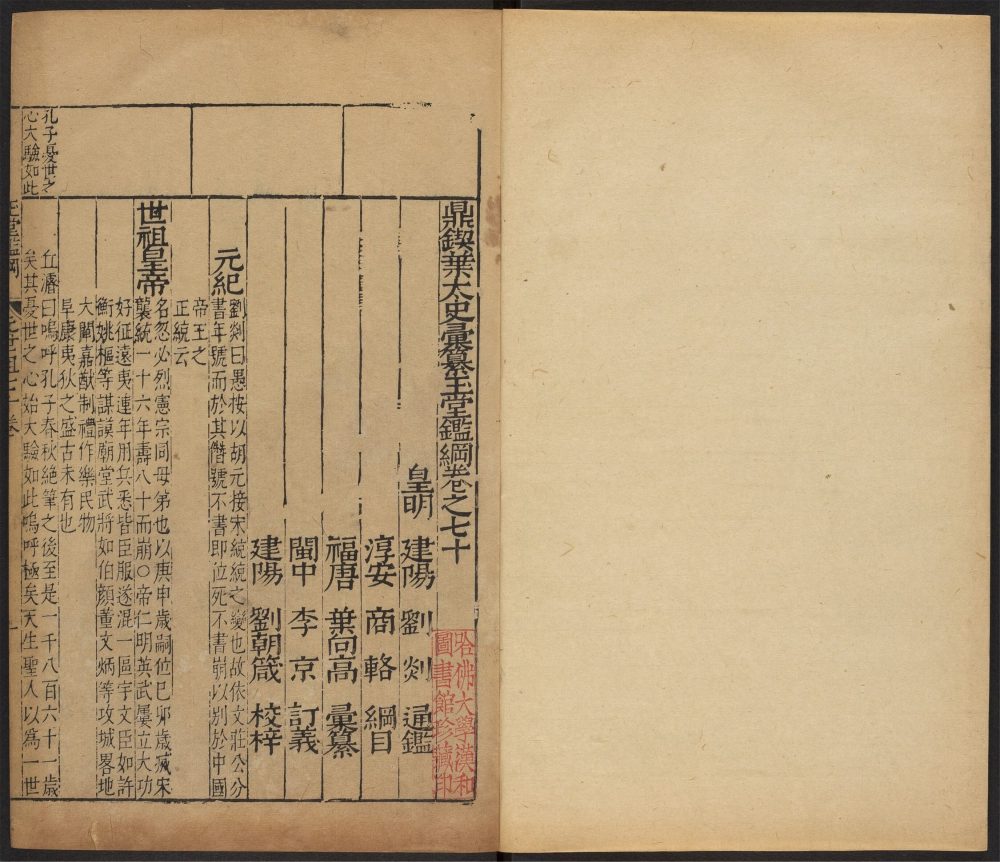 鼎鍥葉太史彙纂玉堂鑑綱卷之七十
皇明 建陽 劉剡 通鑑
淳安 商輅 綱目
福唐 葉向高 彙纂
閩中 李京 訂義
建陽 劉朝箴 校梓
元紀
劉剡曰愚按以胡元接宋統統之變也故依文莊公分
書年號而於其僭號不書即位死不書崩以別於中國
帝王之
正統云
世祖皇帝
名忽必烈憲宗同母弟也以庚申歲嗣位己卯歲滅宋
襲統一十六年壽八十而崩○帝仁明英武屢立大功
好征遠夷連年用兵悉皆臣服遂混一區宇文臣如許
衡姚樞等謀謨廟堂武將如伯顏董文炳等攻城畧地
大闡嘉猷制禮作樂民物
阜康夷狄之盛古未有也
丘濬曰嗚呼孔子春秋絶筆之後至是一千八百六十一歲
矣其憂世之心始大驗如此嗚呼極矣天生聖人以為一世
孔子憂世之
心大驗如此
玉堂鑑綱
七十卷
一
哈佛大學漢和
圖書館珍藏印